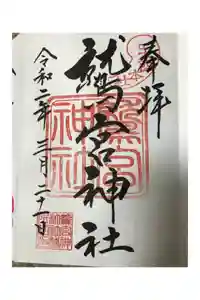 奉拝
鷲宮神社
鷲宮
神社
令和二年三月二十一日